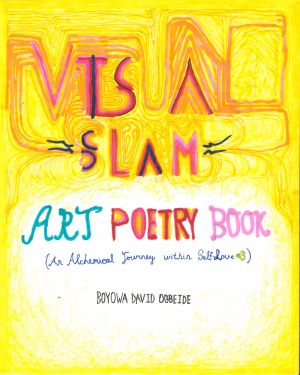 VISUAL
SLAM
ART POETRY BOOK
(An Alchemical Journey within Self Love <3)
BOYOWA DAVID OGBEIDE